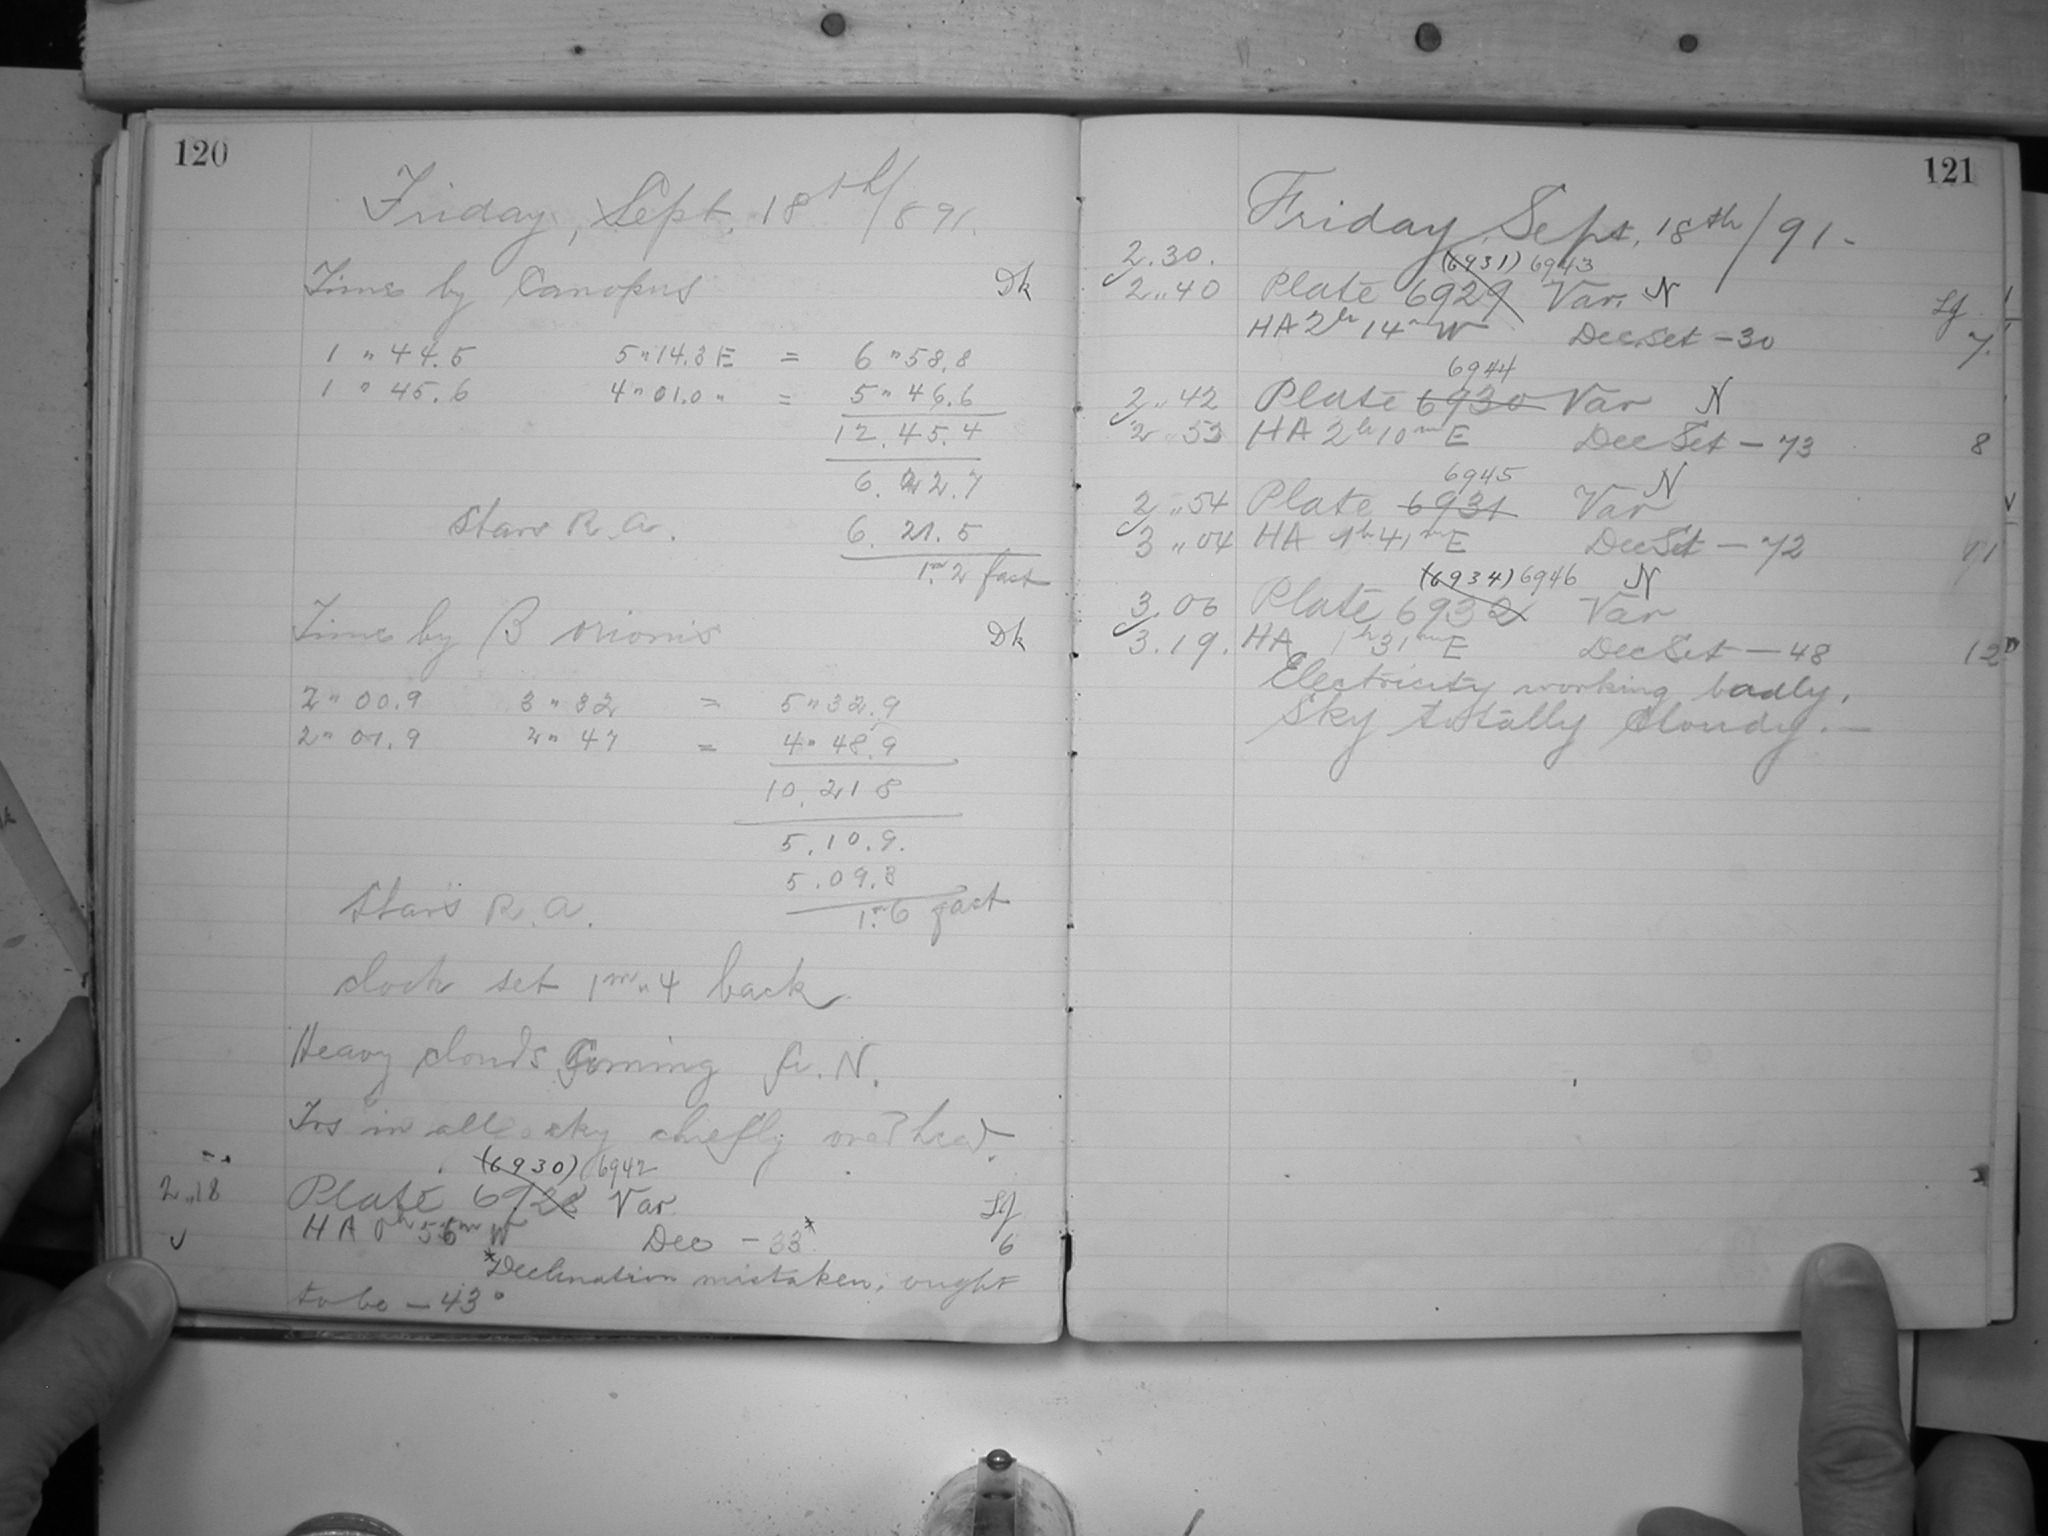 120
Friday, Sept. 18th/891.
Time by Canopus Dk
1 " 44.5 5 " 14.3 E = 6 " 58.8
1 " 45.6 4 " 01.0 " = 5 " 46.6
12.45.4
6. 22.7
Stars R.A. 6. 21.5
1m.2 fast
Time by B orionis Dk
2 " 00.9 3 " 32 = 5 " 32.9
2 " 01.9 2 " 47 = 4 " 48.9
10.21 8
5.10.9.
5.09.3
Star's R.A. 1m.6 fast
clock set 1m"4 back
Heavy clouds Coming fr. N.
in all sky chiefly overhead.
(6930) 6942
2..18 Plate 6928 Var. Lf
HA 0h 56m W Dec -33* 6
*Declination mistaken; ought
to be - 43°
121
Friday Sept. 18th/91-
2.30. (6931) 6943
2..40 Plate 6929 Var. N Lf
HA 2h 14m W Dec Set -30 7.
6944
2..42 Plate 6930 Var N
2..53 HA 2h 10m E Dec Set - 73 8
6945
2..54 Plate 6931 Var N
3..04 HA 1h 41m E Dec Set - 72 11
(6934) 6946 N
3.06 Plate 6932 Var
3.19. HA 1h 31m E Dec Set - 48 12
Electricity working badly.
Sky totally cloudy. -